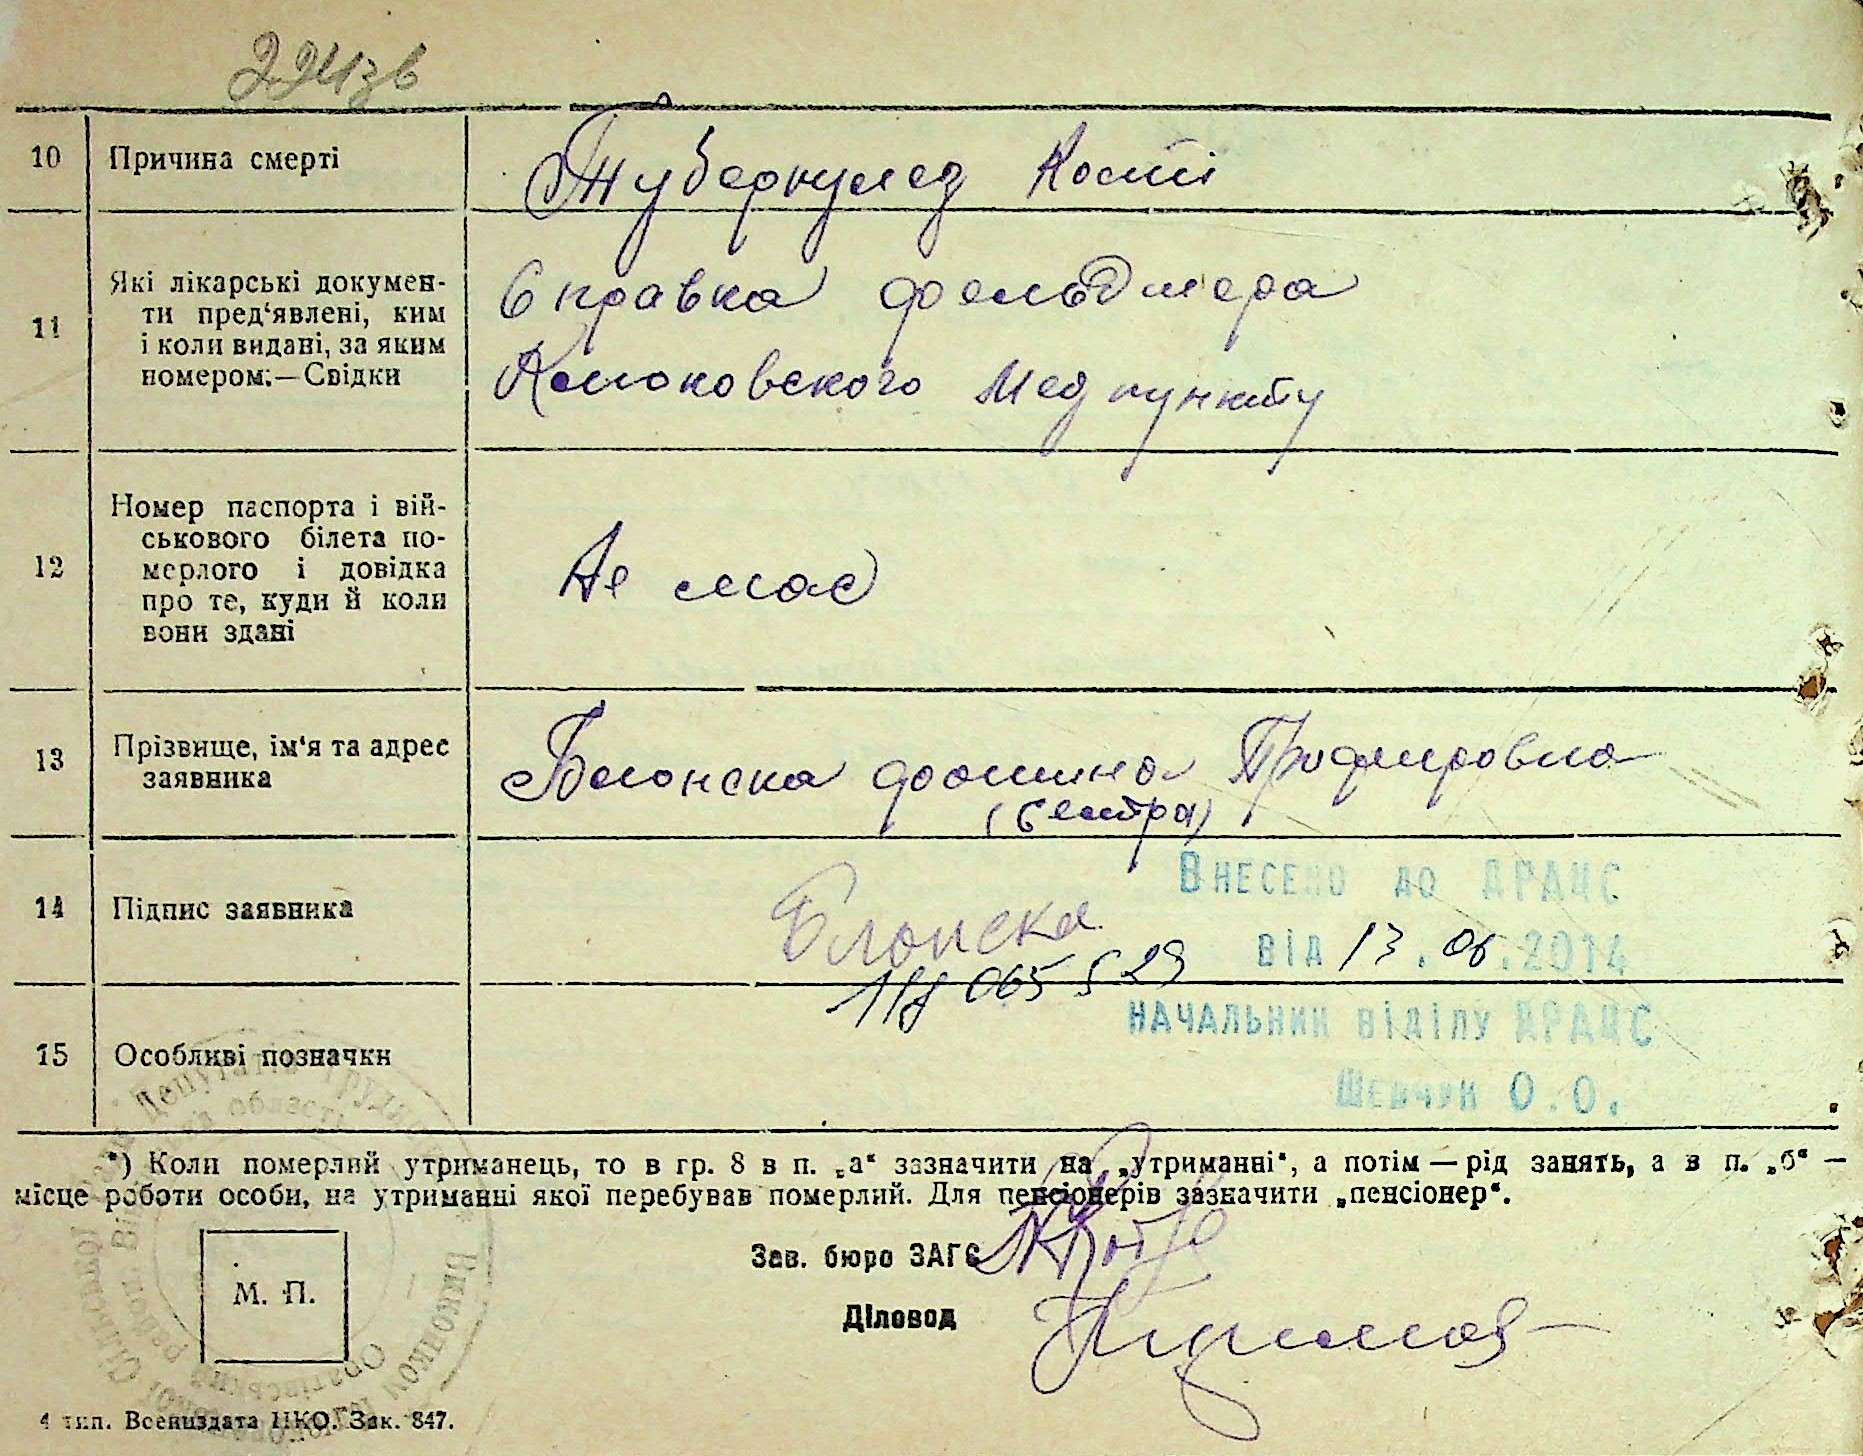 10 Причина смерті Туберкулез Кости
11 Які лікарські докумен-
ти пред‘явлені, ким
і коли видані, за яким
номером.—Свідки
Справка фельдшера
Клюковского Медпункту
12 Номер паспорта і вій-
ськового білета по-
мерлого і довідка
про те, куди й коли
вони здані
Не має
13 Прізвище, ім‘я та адрес
заявника
Блонска Профировна
(Сестра)
14 Підпис заявника Блонска
065529
Внесено до ДРАЦС
від 13.06.2014
начальник відділу ДРАЦС
Шевчук О.О.
15 Особливі позначки
*) Коли померлий утриманець, то в гр. 8 в п. „а“ зазначити на „утриманні“, а потім — рід занять, а в п. „б“ —
місце роботи особи, на утриманні якої перебував померлий. Для пенсіонерів зазначити „пенсіонер“.
М. П.
Зав. бюро ЗАГС
Діловод
4 тип. Воениздата НКО. Зак. 847.